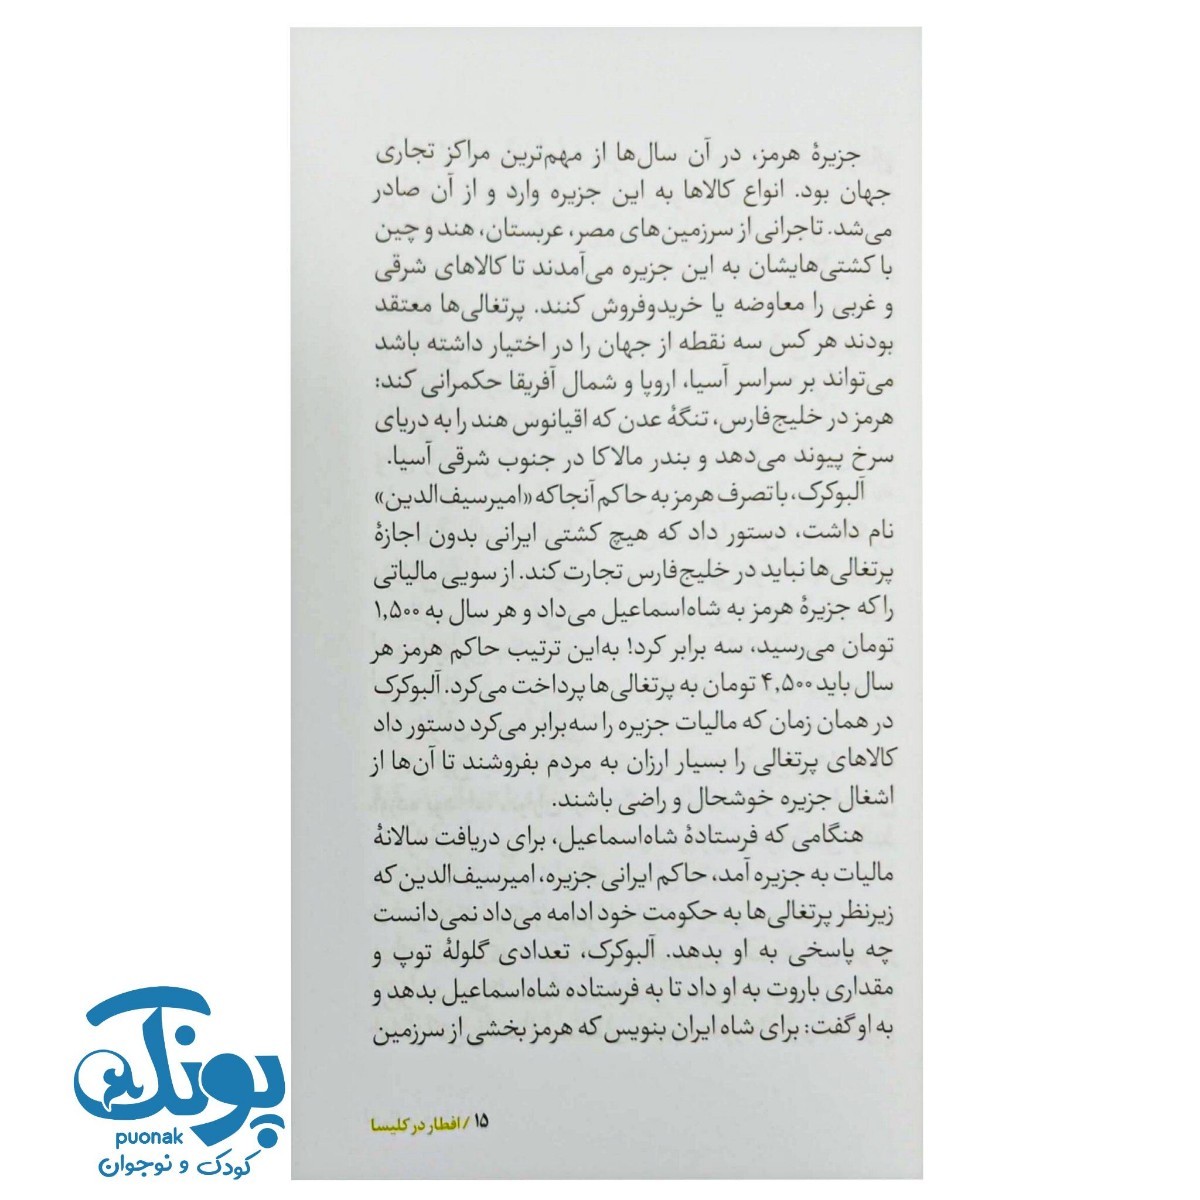 جزیرهٔ هرمز، در آن سال‌ها از مهم‌ترین مراکز تجاری
جهان بود. انواع کالاها به این جزیره وارد و از آن صادر
می‌شد. تاجرانی از سرزمین‌های مصر، عربستان، هند و چین
با کشتی‌هایشان به این جزیره می‌آمدند تا کالاهای شرقی
و غربی را معاوضه یا خریدوفروش کنند. پرتغالی‌ها معتقد
بودند هر کس سه نقطه از جهان را در اختیار داشته باشد
می‌تواند بر سراسر آسیا، اروپا و شمال آفریقا حکمرانی کند:
هرمز در خلیج‌فارس، تنگهٔ عدن که اقیانوس هند را به دریای
سرخ پیوند می‌دهد و بندر مالاکا در جنوب شرقی آسیا.
آلبوکرک، با تصرف هرمز به حاکم آنجا که «امیرسیف‌الدین»
نام داشت، دستور داد که هیچ کشتی ایرانی بدون اجازهٔ
پرتغالی‌ها نباید در خلیج‌فارس تجارت کند. از سویی مالیاتی
را که جزیرهٔ هرمز به شاه‌اسماعیل می‌داد و هر سال به ۱,۵۰۰
تومان می‌رسید، سه برابر کرد! به‌این ترتیب حاکم هرمز هر
سال باید ۴,۵۰۰ تومان به پرتغالی‌ها پرداخت می‌کرد. آلبوکرک
در همان زمان که مالیات جزیره را سه‌برابر می‌کرد دستور داد
کالاهای پرتغالی را بسیار ارزان به مردم بفروشند تا آن‌ها از
اشغال جزیره خوشحال و راضی باشند.
هنگامی که فرستادهٔ شاه‌اسماعیل، برای دریافت سالانهٔ
مالیات به جزیره آمد، حاکم ایرانی جزیره، امیرسیف‌الدین که
زیرنظر پرتغالی‌ها به حکومت خود ادامه می‌داد نمی‌دانست
چه پاسخی به او بدهد. آلبوکرک، تعدادی گلولهٔ توپ و
مقداری باروت به او داد تا به فرستاده شاه‌اسماعیل بدهد و
به او گفت: برای شاه ایران بنویس که هرمز بخشی از سرزمین
۱۵ / افطار در کلیسا
پونک
puonak
کودک و نوجوان